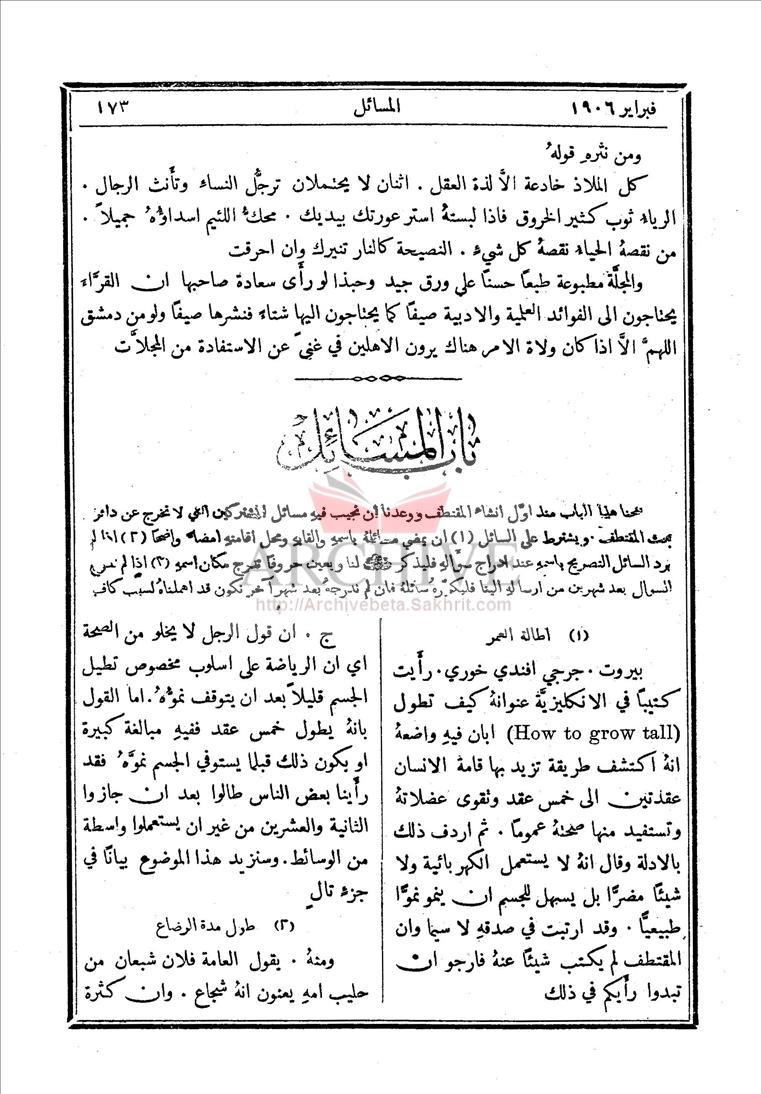 فبراير ١٩٠٦
المسائل
١٧٣
ومن نثره قولهُ
كل الملاذ خادعة الاَّ لذة العقل . اثنان لا يحتملان ترجُّل النساء وتأَنث الرجال .
الرياء ثوب كثير الخروق فاذا لبستهُ استر عورتك بيديك . محكُّ اللئيم اسداؤُهُ جميلاً .
من نقصهُ الحياء نقصهُ كل شيءٍ . النصيحة كالنار تنيرك وان احرقت
والمجلَّة مطبوعة طبعاً حسناً على ورق جيد وحبذا لو رأَى سعادة صاحبها ان القرَّاء
يحتاجون الى الفوائد العلمية والادبية صيفاً كما يحتاجون اليها شتاءً فنشرها صيفاً ولو من دمشق
اللهمَّ الاَّ اذا كان ولاة الامر هناك يرون الاهلين في غنىً عن الاستفادة من المجلاَّت
باب المسائل
فتحنا هذا الباب منذ اوَّل انشاء المقتطف ووعدنا ان نجيب فيهِ مسائل المشتركين التي لا تخرج عن دائرة
بحث المقتطف . ويشترط على السائل (١) ان يمضي مسائلهُ باسمهِ والقابهِ ومحل اقامتهِ امضاءً واضحاً (٢) اذا لم
يرد السائل التصريح باسمهِ عند ادراج سؤالهِ فليذكر ذلك لنا ويعين حروفاً تدرج مكان اسمهِ (٣) اذا لم ندرج
السوال بعد شهرين من ارسالهِ الينا فليكرّره سائلهُ فان لم ندرجهُ بعد شهر آخر نكون قد اهملناهُ لسبب كافٍ
ARCHIVE
http://Archivebeta.Sakhrit.com
(١) اطالة العمر
بيروت . جرجي افندي خوري . رأَيت
كتيباً في الانكليزيَّة عنوانهُ كيف تطول
(How to grow tall) ابان فيهِ واضعهُ
انهُ اكتشف طريقة تزيد بها قامة الانسان
عقدتين الى خمس عقد وتقوى عضلاتهُ
وتستفيد منها صحتهُ عموماً . ثم اردف ذلك
بالادلة وقال انهُ لا يستعمل الكهربائية ولا
شيئاً مضرًّا بل يسهل للجسم ان ينمو نموًّا
طبيعيًّا . وقد ارتبت في صدقهِ لا سيما وان
المقتطف لم يكتب شيئاً عنهُ فارجو ان
تبدوا رأيكم في ذلك
ج . ان قول الرجل لا يخلو من الصحة
اي ان الرياضة على اسلوب مخصوص تطيل
الجسم قليلاً بعد ان يتوقف نموُّهُ . اما القول
بانهُ يطول خمس عقد ففيهِ مبالغة كبيرة
او يكون ذلك قبلما يستوفي الجسم نموَّهُ فقد
رأَينا بعض الناس طالوا بعد ان جازوا
الثانية والعشرين من غير ان يستعملوا واسطة
من الوسائط . وسنزيد هذا الموضوع بياناً في
جزءٍ تالٍ
(٢) طول مدة الرضاع
ومنهُ . يقول العامة فلان شبعان من
حليب امهِ يعنون انهُ شجاع . وان كثرة